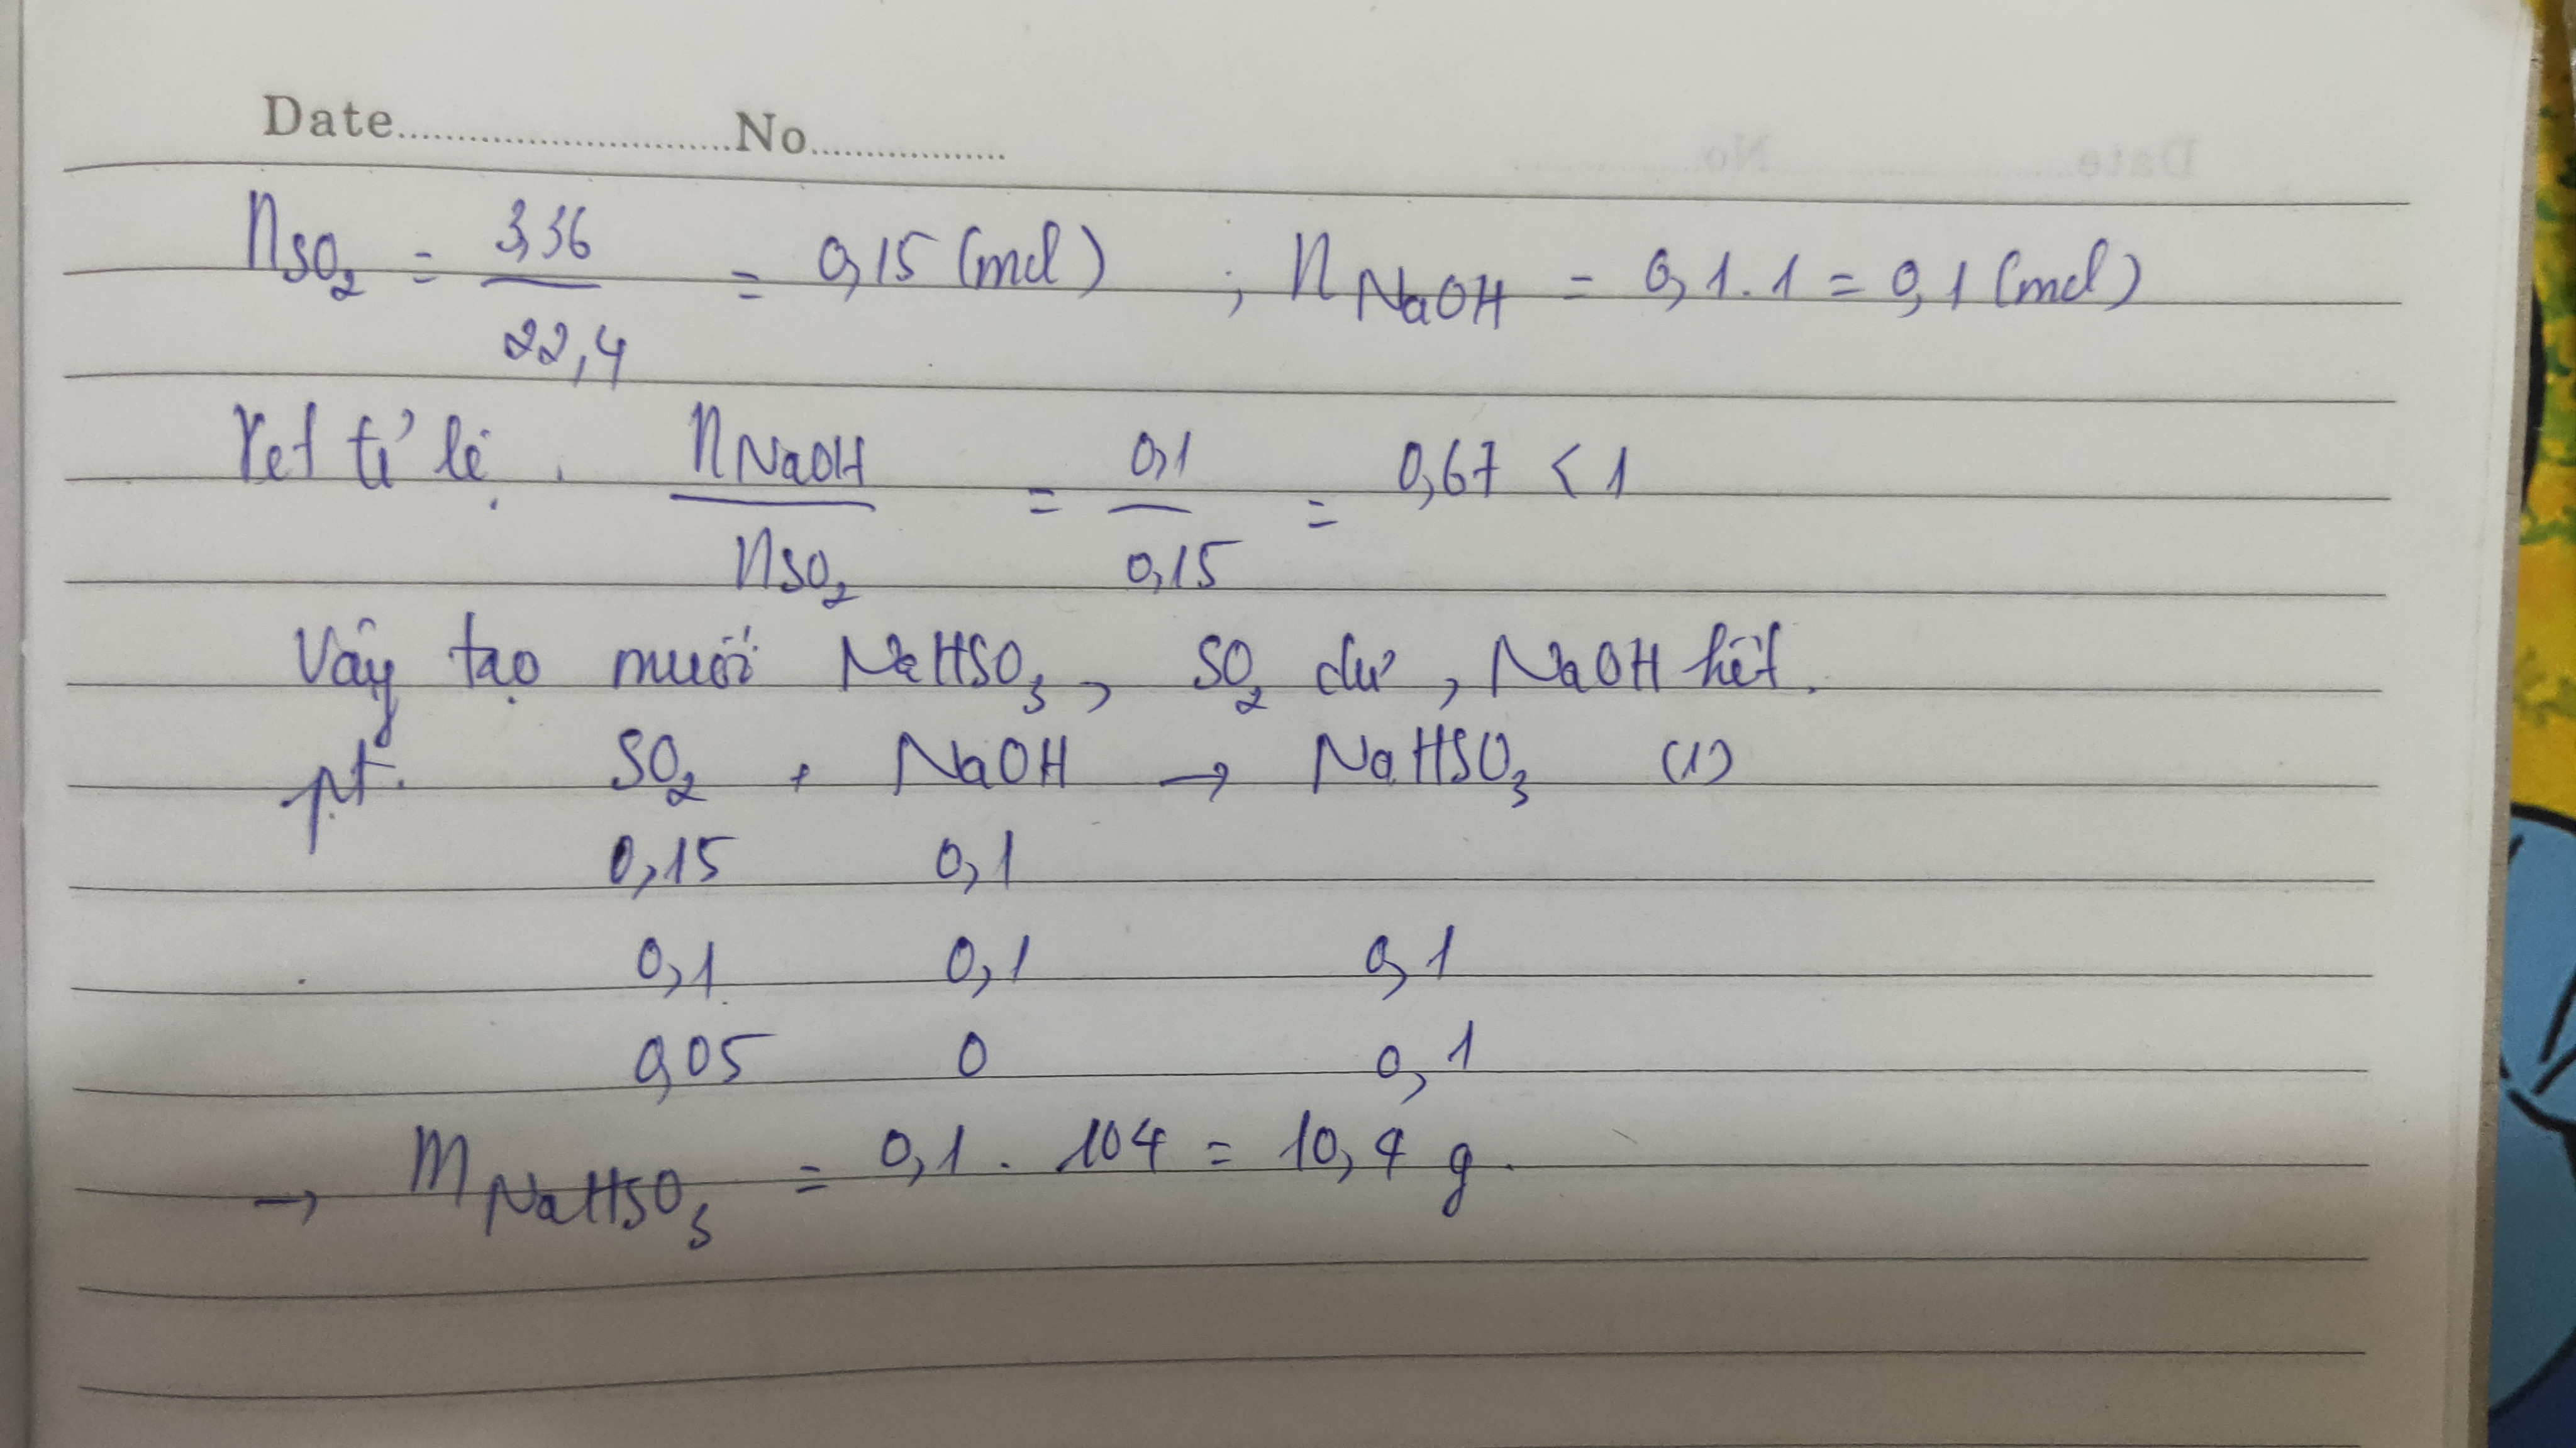 Date..........................No.................
nSO₂ = 3,36 / 22,4 = 0,15 (mol) ; nNaOH = 0,1 . 1 = 0,1 (mol)
Xet tỉ lệ. nNaOH / nSO₂ = 0,1 / 0,15 = 0,67 < 1
Vây tạo muối NaHSO₃, SO₂ dư, NaOH hết.
pt. SO₂ + NaOH → NaHSO₃ (1)
0,15 0,1
0,1 0,1 0,1
0,05 0 0,1
→ mNaHSO₃ = 0,1 . 104 = 10,4 g.